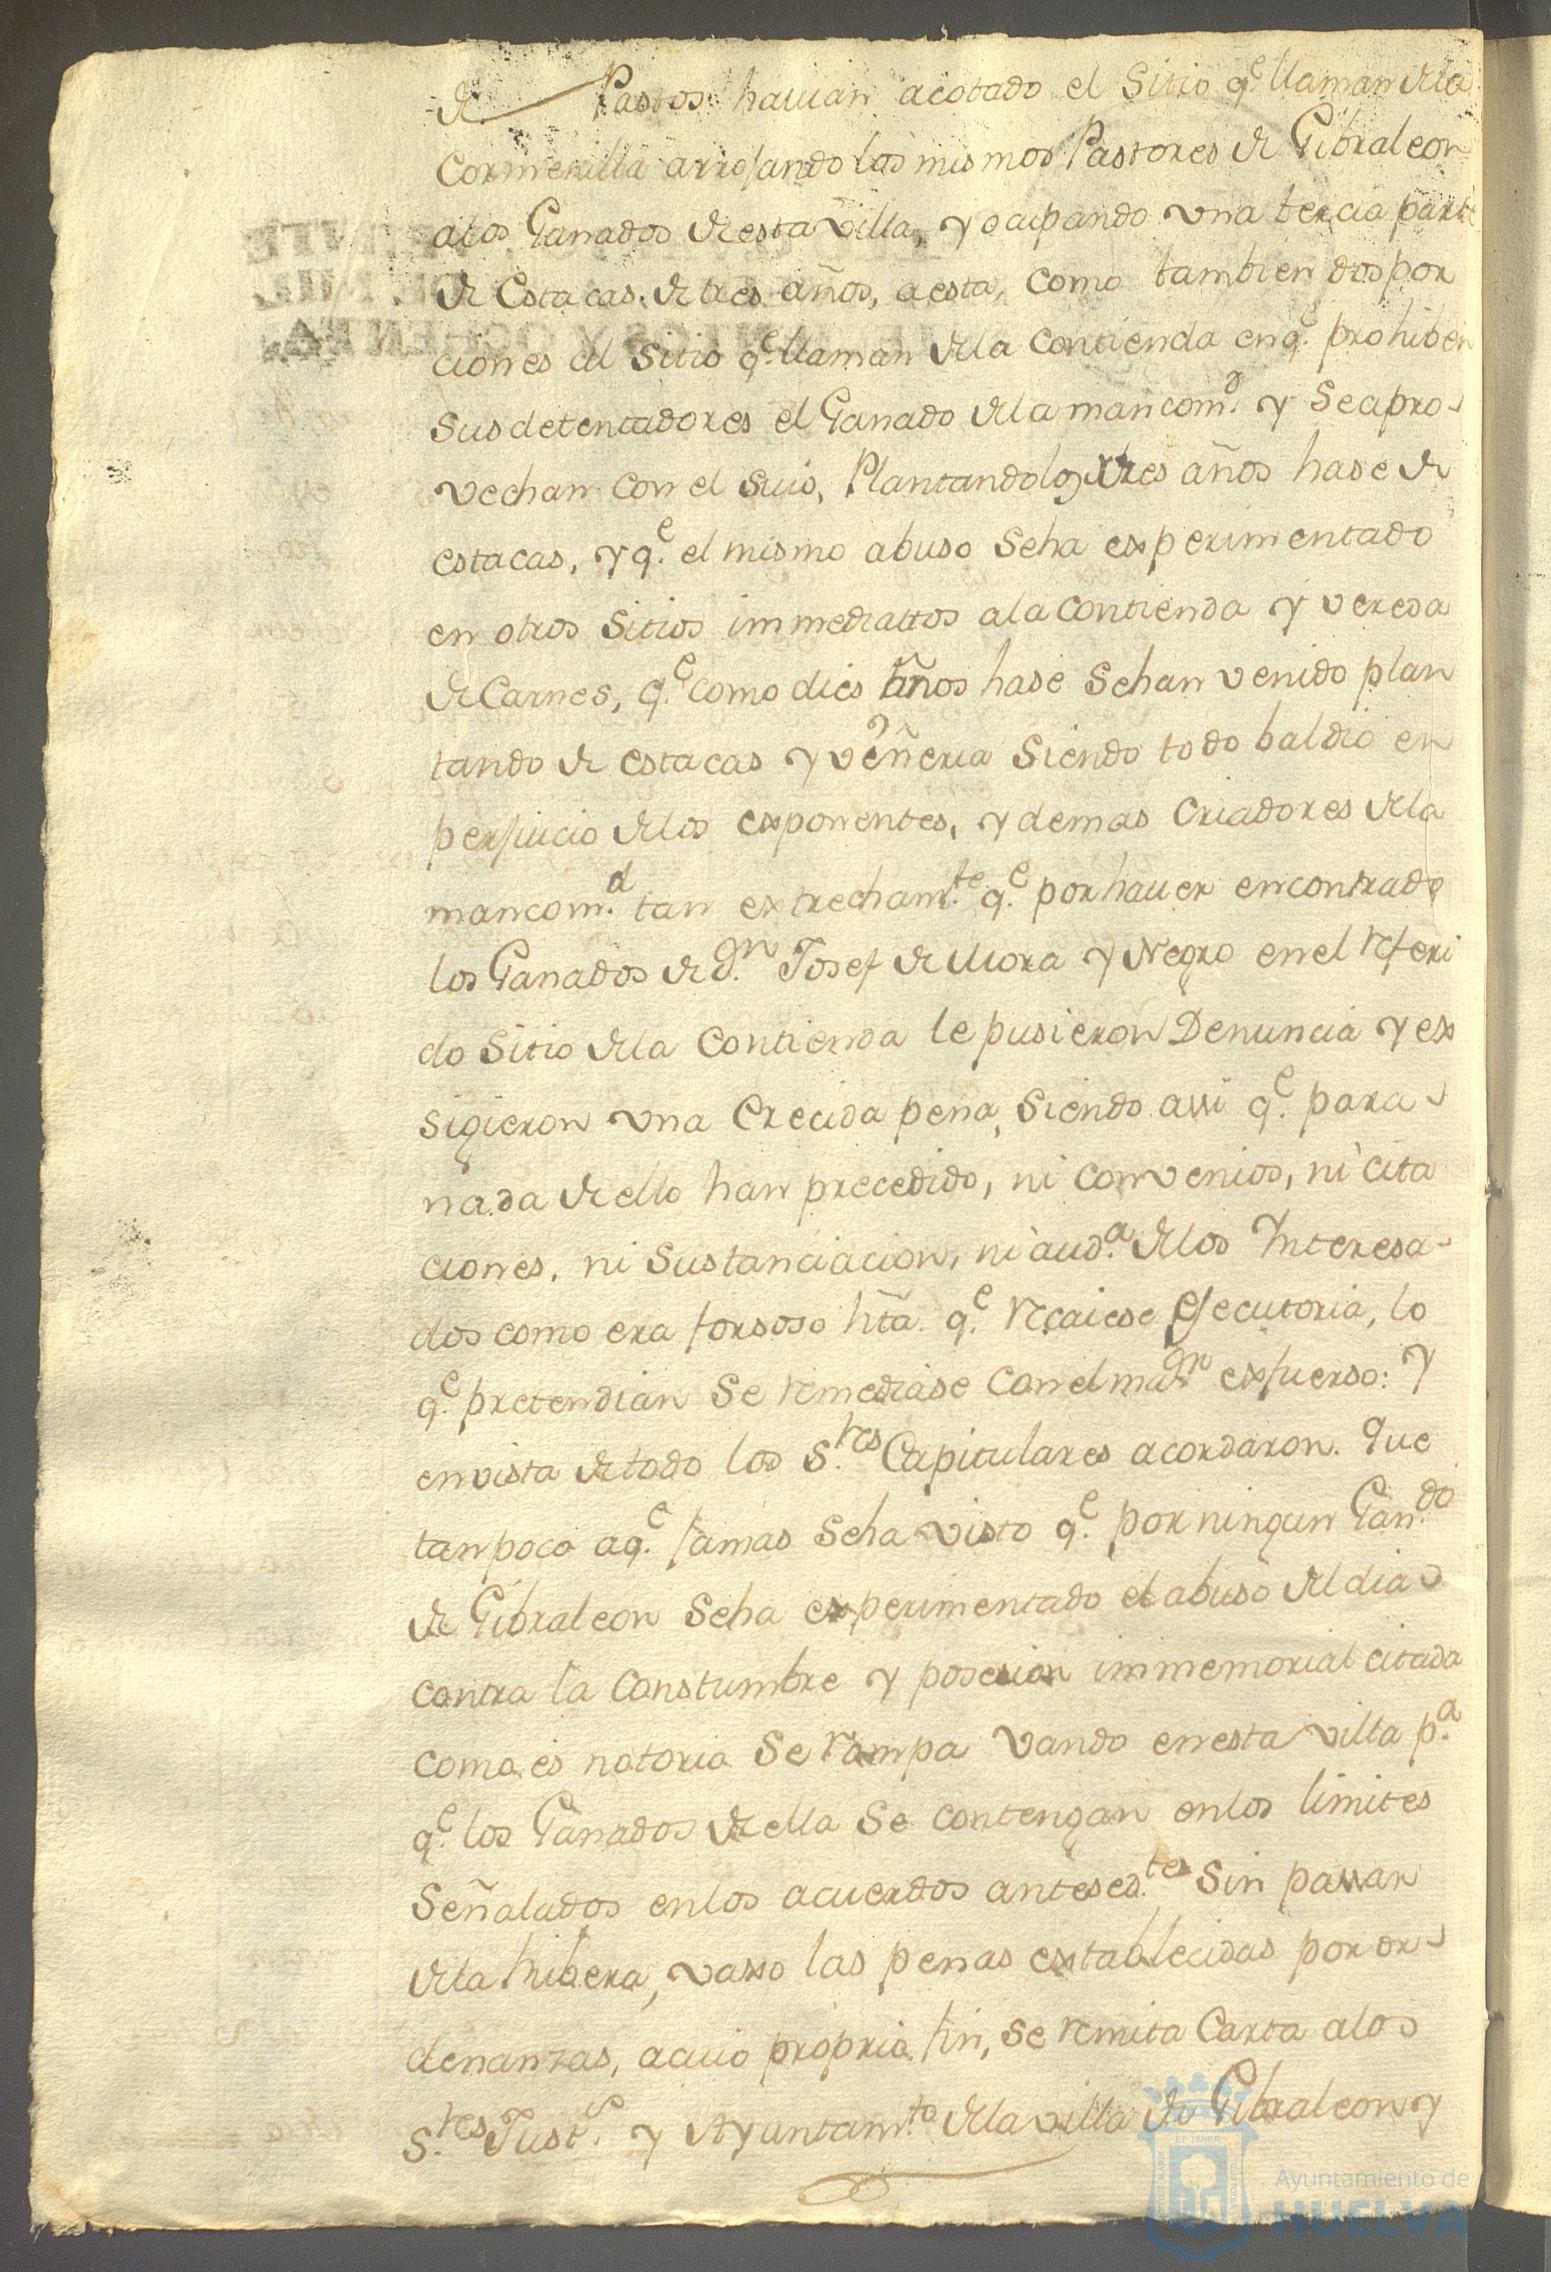 de Pastos havian acotado el Sitio q.e llaman dela
Cormenilla arrojando los mismos Pastores de Gibraleon
alos Ganados de esta Villa, y ocupando una tercia parte
de Estacas de tres años, a esta, como tambien dos por
ciones del Sitio q.e llaman dela Contienda en q.e prohiben
sus detentadores el Ganado dela mancom.d y Se apro-
vechan con el Suio, Plantandolos tres años hase de
estacas, y q.e el mismo abuso Seha experimentado
en otros Sitios immediattos ala Contienda y vereda
de Carnes, q.e como dies años hase Sehan venido plan
tando de estacas y veñeria Siendo todo baldio en
perjuicio delos exponentes, y demas Criadores dela
mancom.d tan extrecham.te q.e por haver encontrado
los Ganados de d.n Josef de Mora y Negro en el referi
do Sitio dela Contienda le pusieron Denuncia y ex
sigieron una Crecida pena, Siendo assi q.e para
nada de ello han precedido, ni Convenios, ni cita
ciones, ni Sustanciacion, ni aud.a delos Interesa-
dos como era forsoso hta. q.e recaiese Ejecutoria, lo
q.e pretendian Se remediase con el maior exfuerso: Y
en vista de todo los S.res Capitulares acordaron. Que
tanpoco aq.e jamas Seha visto q.e por ningun Gan.do
de Gibraleon Seha experimentado el abuso del dia
contra la Constumbre y posesion immemorial citada
como es notoria Se rompa Vando en esta Villa p.a
q.e los Ganados de ella Se contengan en los limites
Señalados en los acuerdos antesed.tes Sin passar
dela Ribera, vaxo las penas extablecidas por or-
denanzas, a cuio proprio fin, Se remita Carta alos
S.res Just.s y Ayuntam.to dela villa de Gibraleon y
Ayuntamiento de
HUELVA